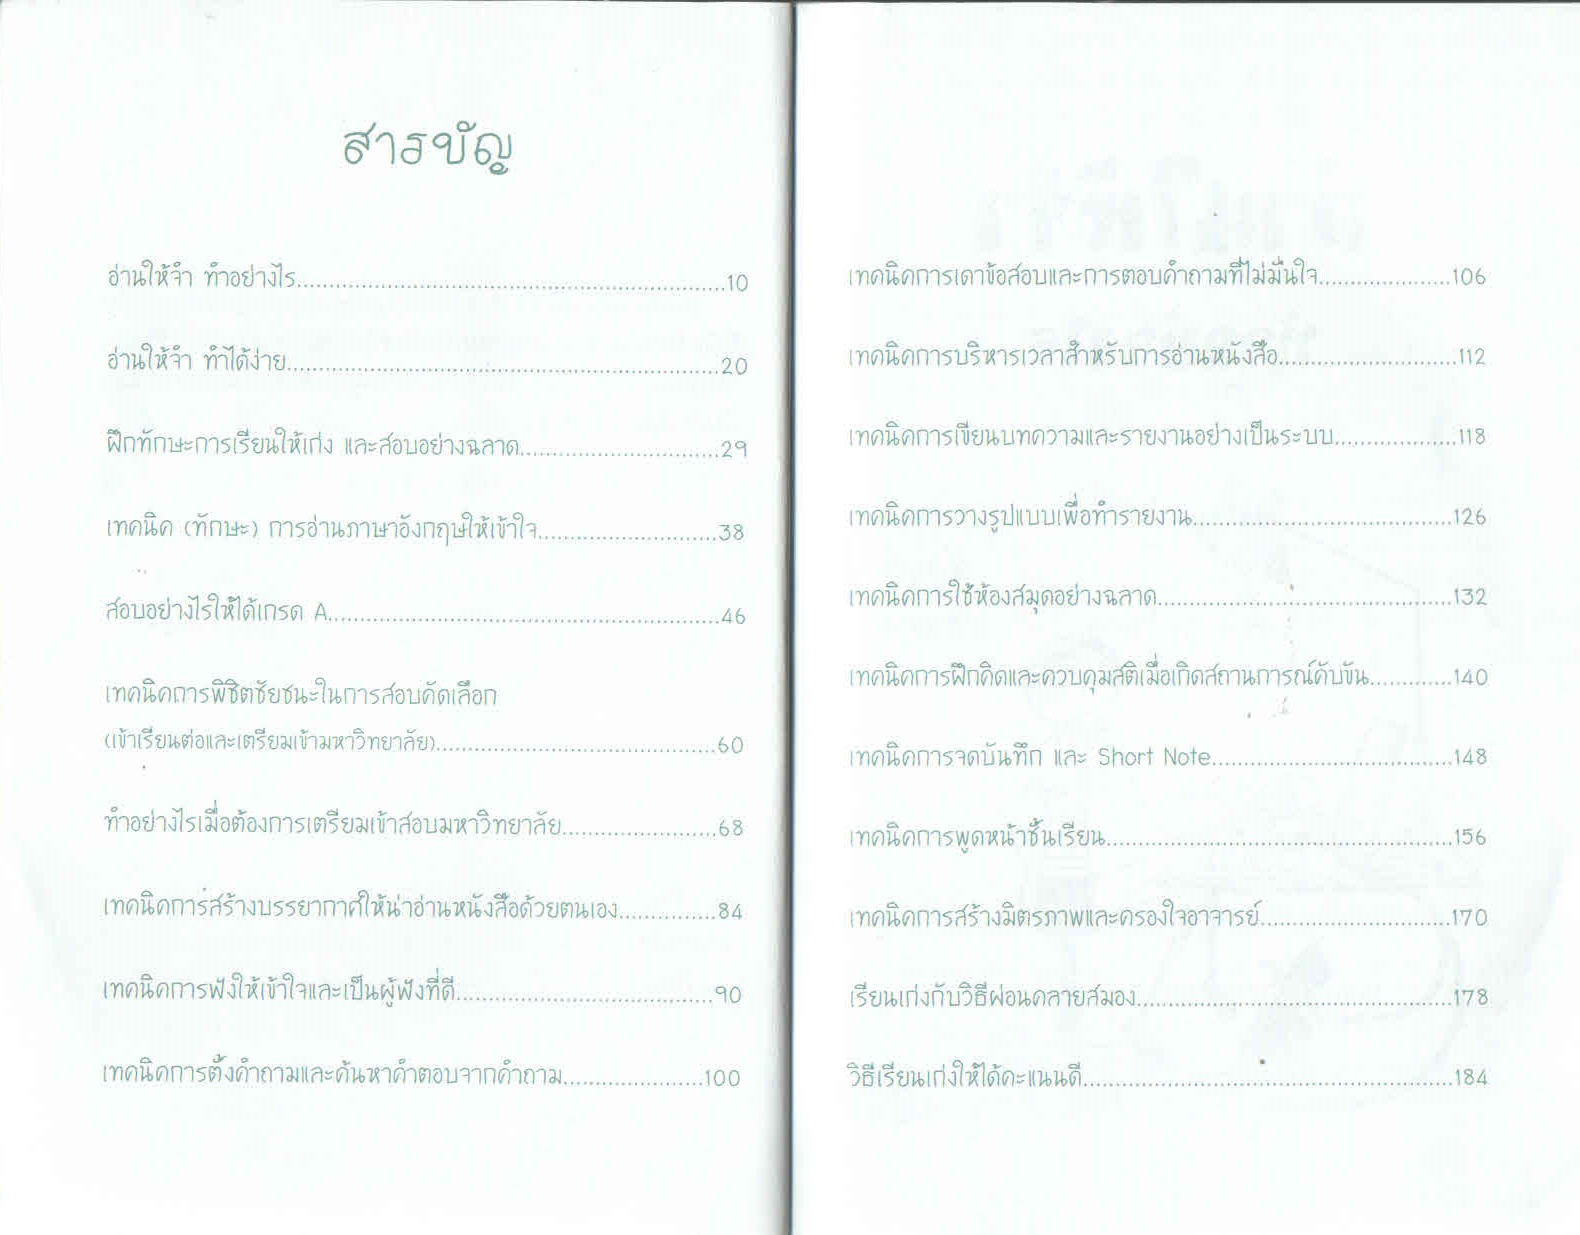 สารบัญ
อ่านให้จำ ทำอย่างไร....................................................................10
อ่านให้จำ ทำได้ง่าย.....................................................................20
ฝึกทักษะการเรียนให้เก่ง และสอบอย่างฉลาด................................29
เทคนิค (ทักษะ) การอ่านภาษาอังกฤษให้เข้าใจ.............................38
สอบอย่างไรให้ได้เกรด A...............................................................46
เทคนิคการพิชิตชัยชนะในการสอบคัดเลือก
(เข้าเรียนต่อและเตรียมเข้ามหาวิทยาลัย)............................................60
ทำอย่างไรเมื่อต้องการเตรียมเข้าสอบมหาวิทยาลัย.........................68
เทคนิคการสร้างบรรยากาศให้น่าอ่านหนังสือด้วยตนเอง................84
เทคนิคการฟังให้เข้าใจและเป็นผู้ฟังที่ดี.........................................90
เทคนิคการตั้งคำถามและค้นหาคำตอบจากคำถาม......................100
เทคนิคการเดาข้อสอบและการตอบคำถามที่ไม่มั่นใจ.....................106
เทคนิคการบริหารเวลาสำหรับการอ่านหนังสือ............................112
เทคนิคการเขียนบทความและรายงานอย่างเป็นระบบ...................118
เทคนิคการวางรูปแบบเพื่อทำรายงาน.........................................126
เทคนิคการใช้ห้องสมุดอย่างฉลาด...............................................132
เทคนิคการฝึกคิดและควบคุมสติเมื่อเกิดสถานการณ์คับขัน.............140
เทคนิคการจดบันทึก และ Short Note......................................148
เทคนิคการพูดหน้าชั้นเรียน.......................................................156
เทคนิคการสร้างมิตรภาพและครองใจอาจารย์..............................170
เรียนเก่งกับวิธีผ่อนคลายสมอง..................................................178
วิธีเรียนเก่งให้ได้คะแนนดี...........................................................184